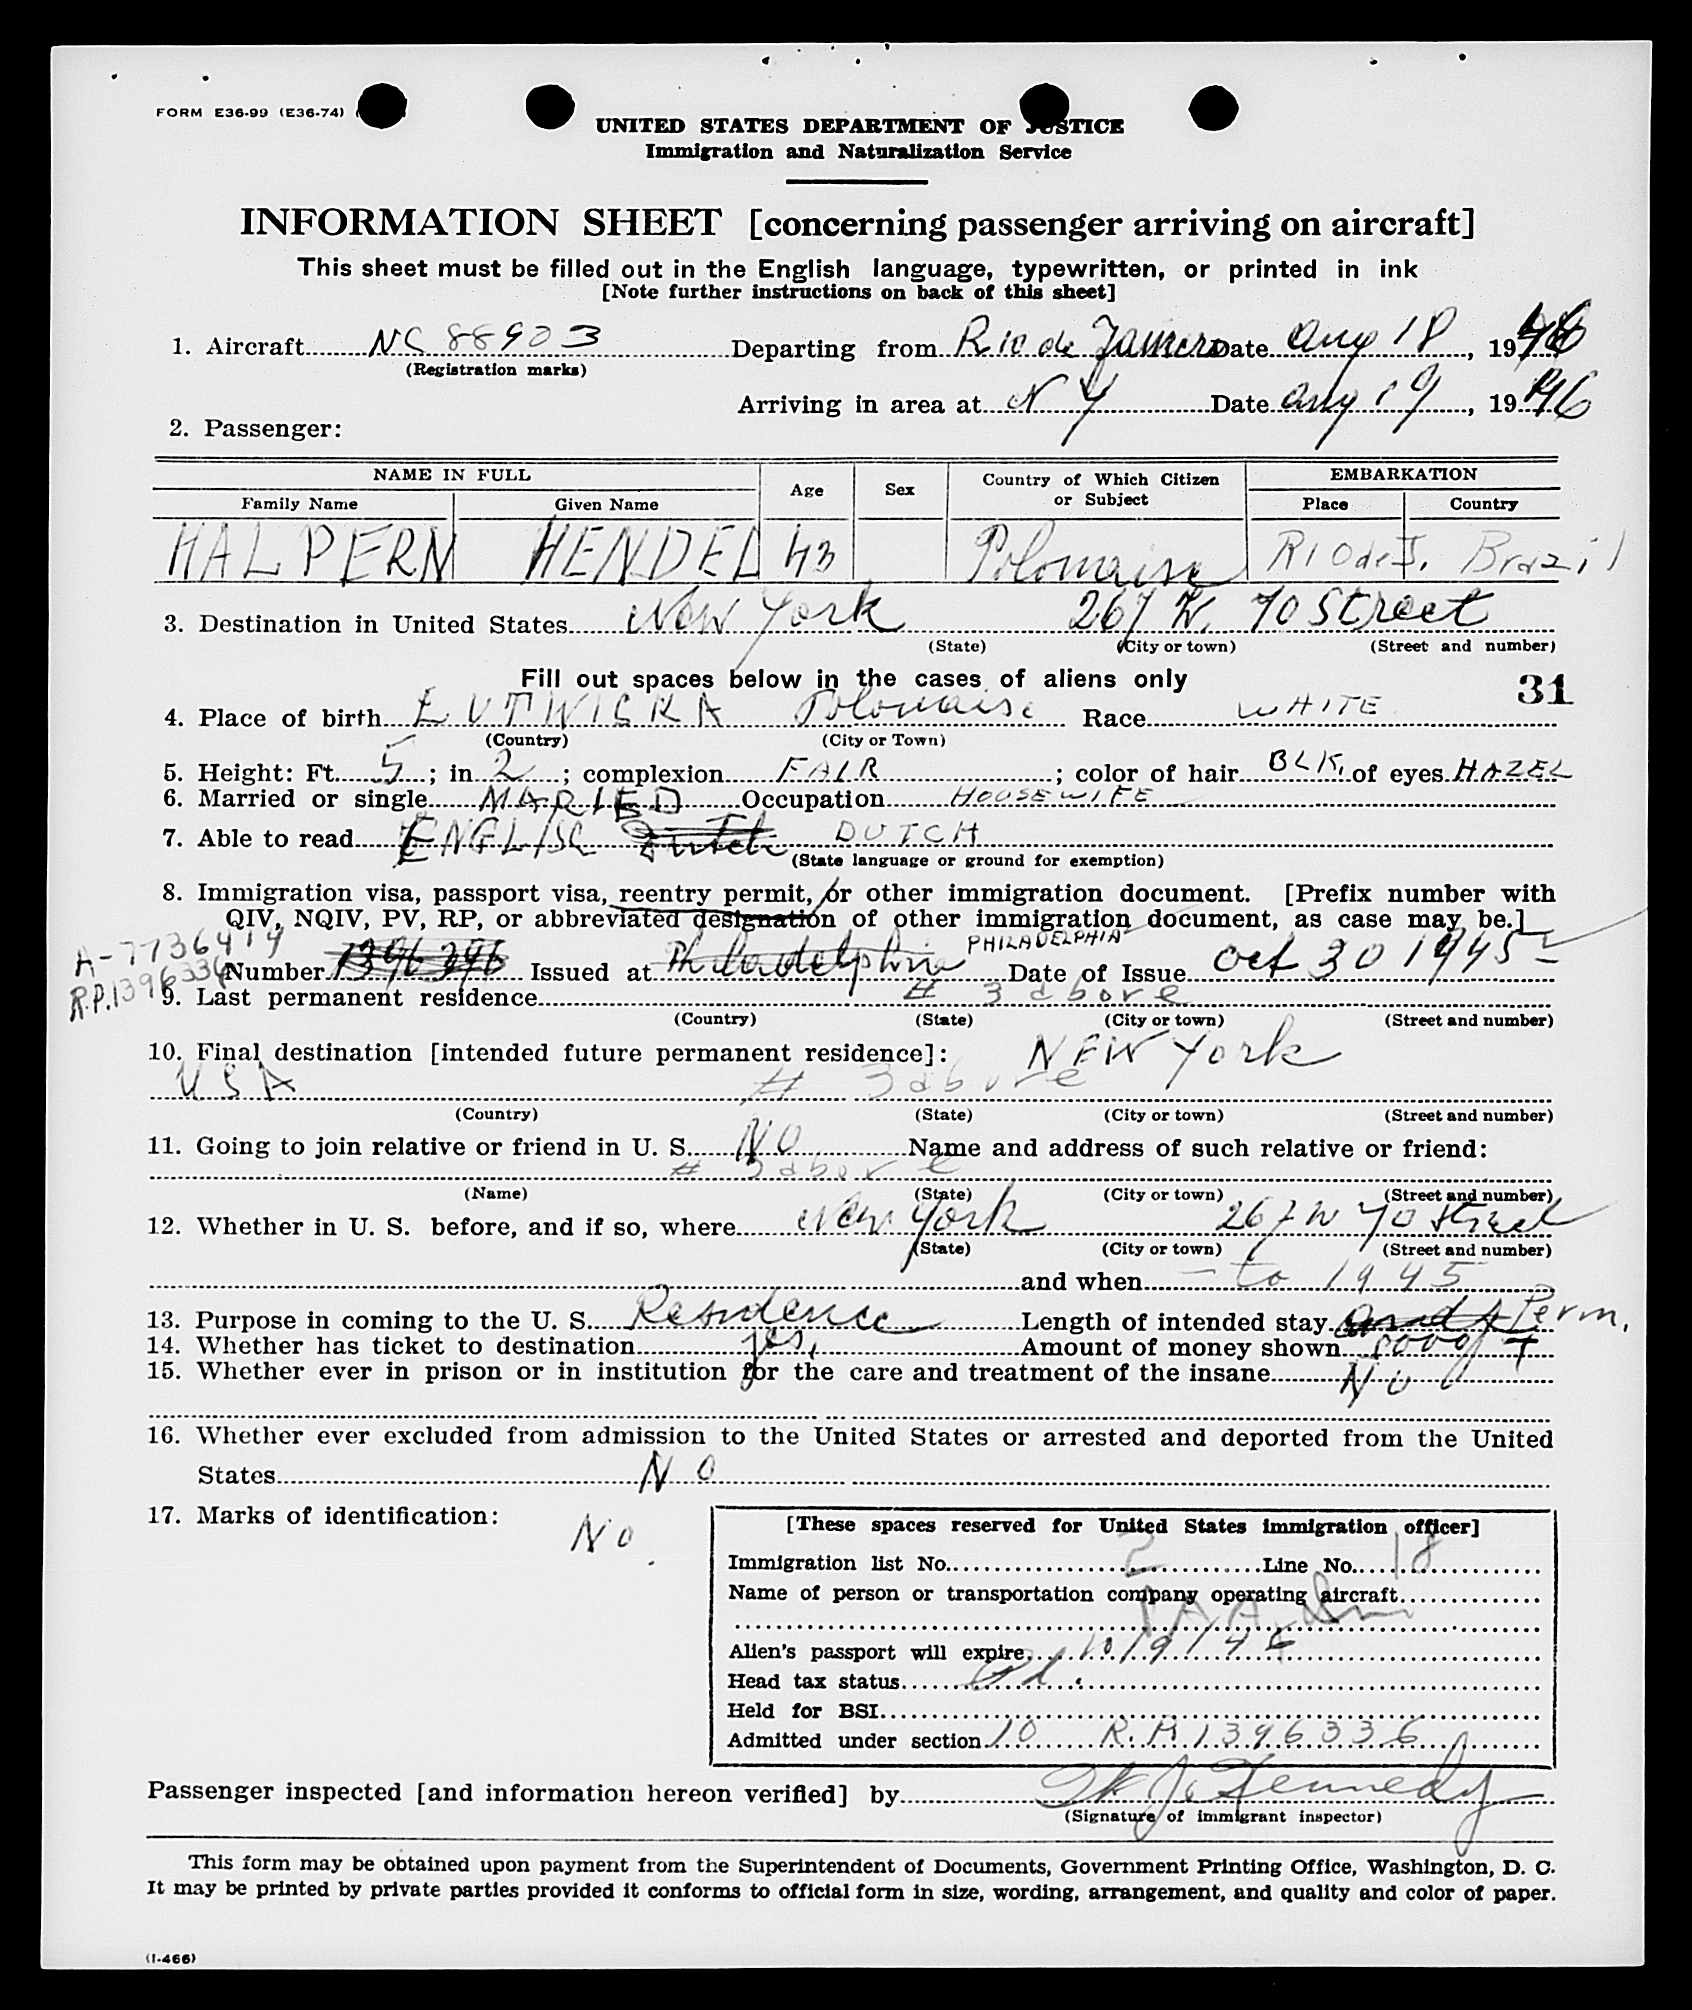 FORM E36-99 (E36-74)
UNITED STATES DEPARTMENT OF JUSTICE
Immigration and Naturalization Service
INFORMATION SHEET [concerning passenger arriving on aircraft]
This sheet must be filled out in the English language, typewritten, or printed in ink
[Note further instructions on back of this sheet]
1. Aircraft NC 88903 Departing from Rio de Janeiro Date Aug 18, 1946
(Registration marks)
Arriving in area at N Y Date Aug 19, 1946
2. Passenger:
NAME IN FULL Age Sex Country of Which Citizen or Subject EMBARKATION
Family Name Given Name Place Country
HALPERN HENDEL 43 Polonaise Rio de J. Brazil
3. Destination in United States New York 267 W. 70 Street
(State) (City or town) (Street and number)
Fill out spaces below in the cases of aliens only
31
4. Place of birth LUTWISKA Polonaise Race WHITE
(Country) (City or Town)
5. Height: Ft. 5; in. 2; complexion FAIR; color of hair BLK. of eyes HAZEL
6. Married or single MARIED Occupation HOUSEWIFE
7. Able to read ENGLISC Dutch DUTCH
(State language or ground for exemption)
8. Immigration visa, passport visa, reentry permit, or other immigration document. [Prefix number with
QIV, NQIV, PV, RP, or abbreviated designation of other immigration document, as case may be.]
A-7736414
PHILADELPHIA
Number 1396396 Issued at Philadelphia Date of Issue Oct 30 1945
R.P. 1396336
9. Last permanent residence # 3 above
(Country) (State) (City or town) (Street and number)
10. Final destination [intended future permanent residence]: NEW York
USA # 3 above
(Country) (State) (City or town) (Street and number)
11. Going to join relative or friend in U. S. NO Name and address of such relative or friend:
# 3 above
(Name) (State) (City or town) (Street and number)
12. Whether in U. S. before, and if so, where New York 267 W 70 Street
(State) (City or town) (Street and number)
and when - to 1945
13. Purpose in coming to the U. S. Residence Length of intended stay Perm.
14. Whether has ticket to destination yes, Amount of money shown
15. Whether ever in prison or in institution for the care and treatment of the insane No
16. Whether ever excluded from admission to the United States or arrested and deported from the United
States NO
17. Marks of identification: No.
[These spaces reserved for United States immigration officer]
Immigration list No. 2 Line No. 18
Name of person or transportation company operating aircraft
P.A.A.
Alien's passport will expire 10/9/46
Head tax status Pd.
Held for BSI
Admitted under section 10 R.P. 1396336
Passenger inspected [and information hereon verified] by J. Kennedy
(Signature of immigrant inspector)
This form may be obtained upon payment from the Superintendent of Documents, Government Printing Office, Washington, D. C.
It may be printed by private parties provided it conforms to official form in size, wording, arrangement, and quality and color of paper.
(I-466)